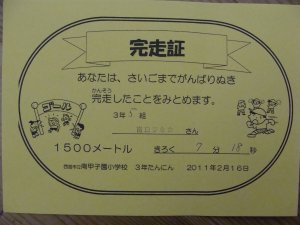 完走証
あなたは、さいごまでがんばりぬき
かんそう
完走したことをみとめます。
ゴール
3年5組
さん
1500メートル きろく 7分18秒
西宮市立南甲子園小学校 3年たんにん 2011年2月16日